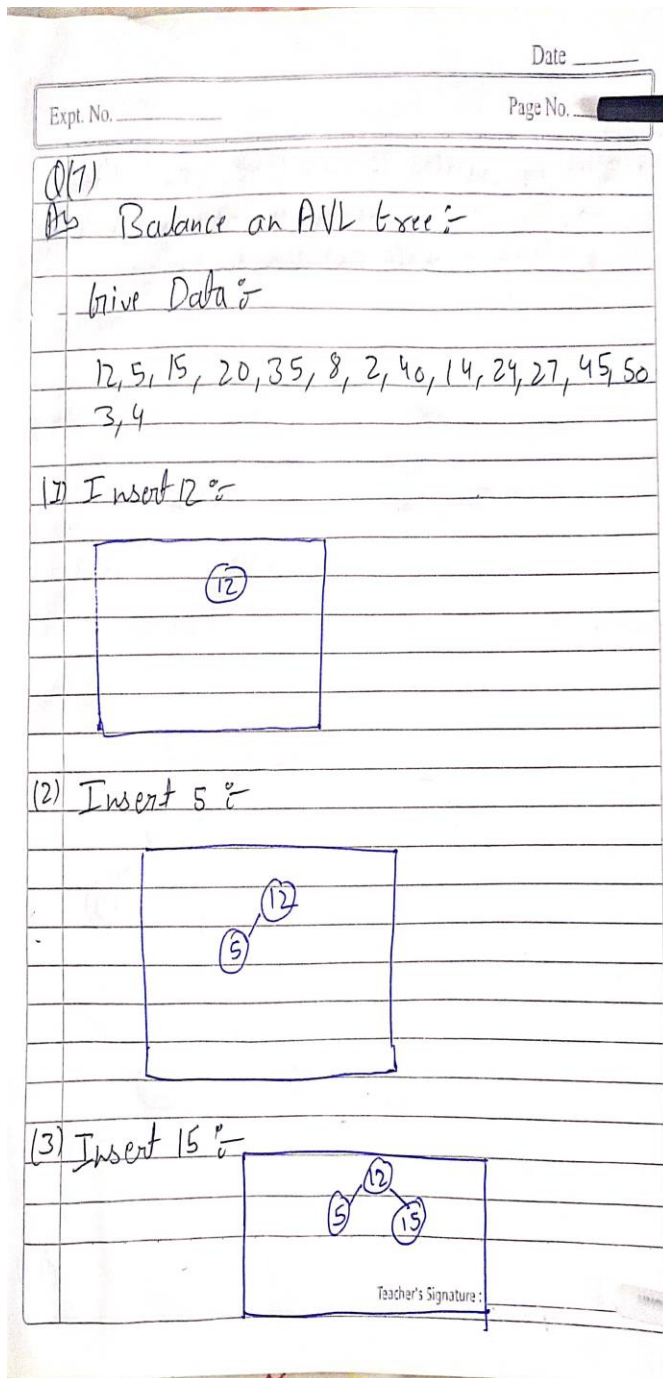 Date
Expt. No.
Page No.
Q(7)
Ans Balance an AVL tree :-
Give Data :-
12, 5, 15, 20, 35, 8, 2, 40, 14, 24, 27, 45, 50
3, 4
(1) Insert 12 :-
12
(2) Insert 5 :-
12
5
(3) Insert 15 :-
12
5 15
Teacher's Signature :